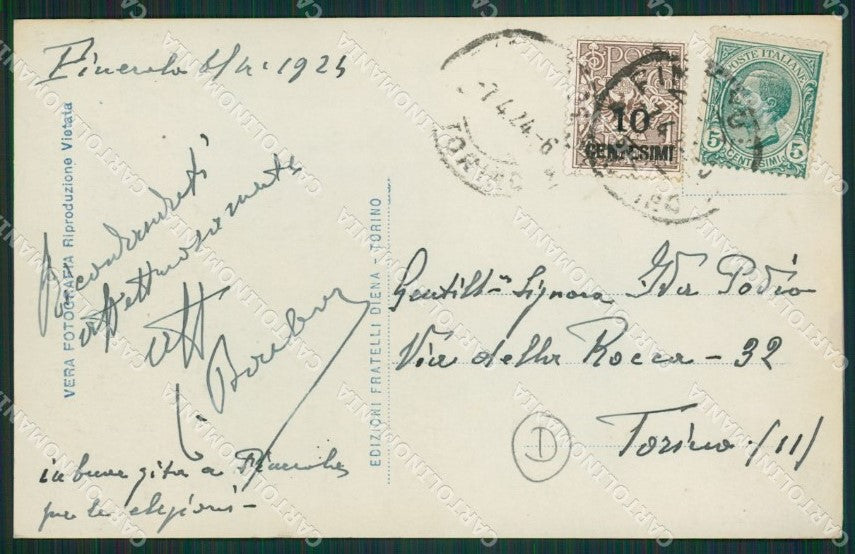 Pinerolo 6/4. 1924
Ricordandoti
affettuosamente
aff
in buon gita a Pinerolo
per le elezioni -
VERA FOTOGRAFIA Riproduzione Vietata
EDIZIONI FRATELLI DIENA - TORINO
-7.4.24-6
TORINO
POSTE
10
CENTESIMI
POSTE ITALIANE
5 5
CENTESIMI
Gentilᵐᵃ Signora Ida Podio
Via della Rocca - 32
Torino /(11)
D
CARTOLINOMANIA